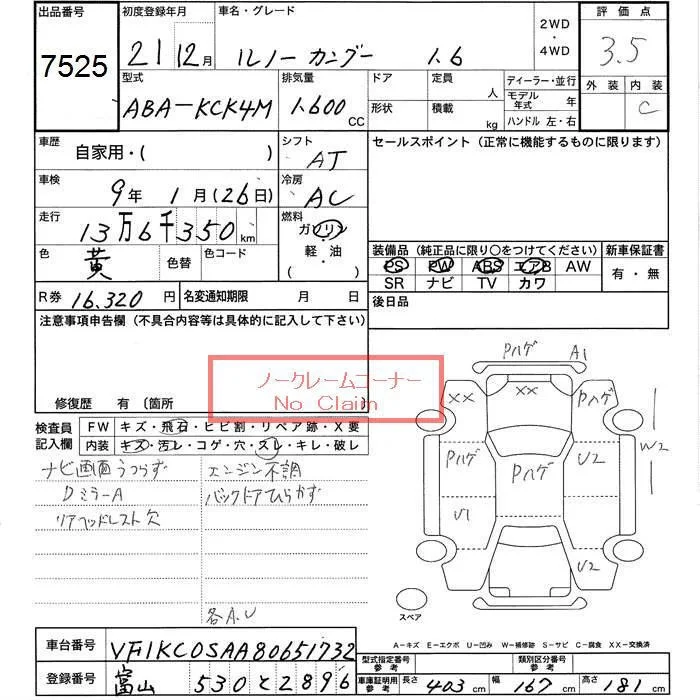 出品番号 初度登録年月 車名・グレード 2WD・4WD 評価点
7525 21 12月 ルノー カングー 1.6 3.5
型式 排気量 ドア 定員 人 ディーラー・並行 外装 内装
ABA-KCK4M 1.600 CC 形状 積載 kg モデル年式 年 C
ハンドル 左・右
車歴 自家用・( ) シフト AT セールスポイント（正常に機能するものに限ります）
車検 9年 1月(26日) 冷房 AC
走行 13万6千350km 燃料 ガソリン・軽・油 ・( )
色 黄 色替 色コード 装備品（純正品に限り○をつけてください） 新車保証書
PS PW ABS エアB AW 有・無
SR ナビ TV カワ
R券 16.320円 名変通知期限 月 日 後日品
注意事項申告欄（不具合内容等は具体的に記入して下さい）
ノークレームコーナー
No Claim
修復歴 有（箇所
検査員記入欄 FW キズ・飛石・ヒビ割・リペア跡・X要
内装 キズ・汚レ・コゲ・穴・スレ・キレ・破レ
ナビ画面うつらず エンジン不調
DミラーA バックドアひらかず
リアヘッドレスト欠
各A.U
Pハゲ A1
XX XX Pハゲ
Pハゲ Pハゲ U2 W2
U1 U2
スペア
A-キズ E-エクボ U-凹み W-補修跡 S-サビ C-腐食 XX-交換済
車台番号 VF1KC0SAA80651732 型式指定番号 参考 類別区分番号 参考
登録番号 富山 530 と 2896 車庫証明用参考 長さ 403cm 幅 167cm 高さ 181cm